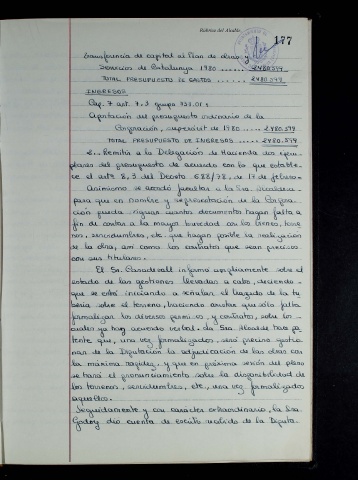 Rúbrica del Alcalde,
177
transferencia de capital al Plan de obras y
Servicios de Catalunya 1980 ...... 2480.594
TOTAL PRESUPUESTO DE GASTOS ... 2480.594
INGRESOS
Cap. 7 art. 7.3 grupo 731.01:
Aportación del presupuesto ordinario de la
Corporación, superávit de 1980 .... 2480.594
TOTAL PRESUPUESTO DE INGRESOS ... 2480.594
2.- Remitir a la Delegación de Hacienda dos ejem-
plares del presupuesto de acuerdo con lo que estable-
ce el art. 8,3 del Decreto 688/78, de 17 de febrero.-
Asimismo se acordó facultar a la Sra. Alcaldesa
para que en nombre y representación de la Corpora-
ción pueda firmar cuantos documentos hagan falta a
fin de contar a la mayor brevedad con los terre-
nos, servidumbres, etc. que hagan posible la realización
de la obra, así como los contratos que sean precisos
con sus titulares.
El Sr. Casadevall informa ampliamente sobre el
estado de las gestiones llevadas a cabo, diciendo
que se está iniciando a señalar el trazado de la tu-
bería sobre el terreno, haciendo constar que sólo falta
formalizar los diversos permisos, y contratos, sobre los
cuales ya hay acuerdo verbal. La Sra. Alcaldesa hace pa-
tente que, una vez formalizados, será preciso gestio-
nar de la Diputación la adjudicación de las obras con
la máxima rapidez, y que en próxima sesión del pleno
se hará el pronunciamiento sobre la disponibilidad de
los terrenos, servidumbres, etc, una vez formalizados
aquellos.
Seguidamente y con carácter extraordinario, la Sra.
Godoy dio cuenta de escrito recibido de la Diputa-